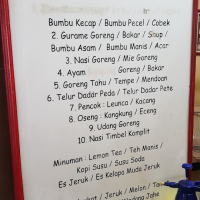 Bumbu Kecap / Bumbu Pecel / Cobek
2. Gurame Goreng / Bakar / Shup /
Bumbu Asam / Bumbu Manis / Acar
3. Nasi Goreng / Mie Goreng
4. Ayam Goreng / Bakar
5. Goreng Tahu / Tempe / Mendoan
6. Telur Dadar Peda / Telur Dadar Pete
7. Pencok : Leunca / Kacang
8. Oseng : Kangkung / Eceng
9. Udang Goreng
10. Nasi Timbel Komplit
Minuman : Lemon Tea / Teh Manis /
Kopi Susu / Susu Soda
Es Jeruk / Es Kelapa Muda Jeruk
/ Jeruk / Melon /
Jahe